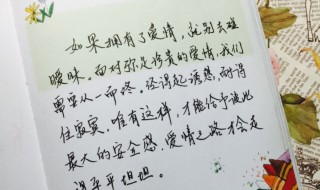 如果拥有了爱情，就别去碰
暧昧。面对弥足珍贵的爱情，我们
需要从一而终，经得起诱惑，耐得
住寂寞，唯有这样，才能给予彼此
最大的安全感，爱情之路才会走
得平平坦坦。